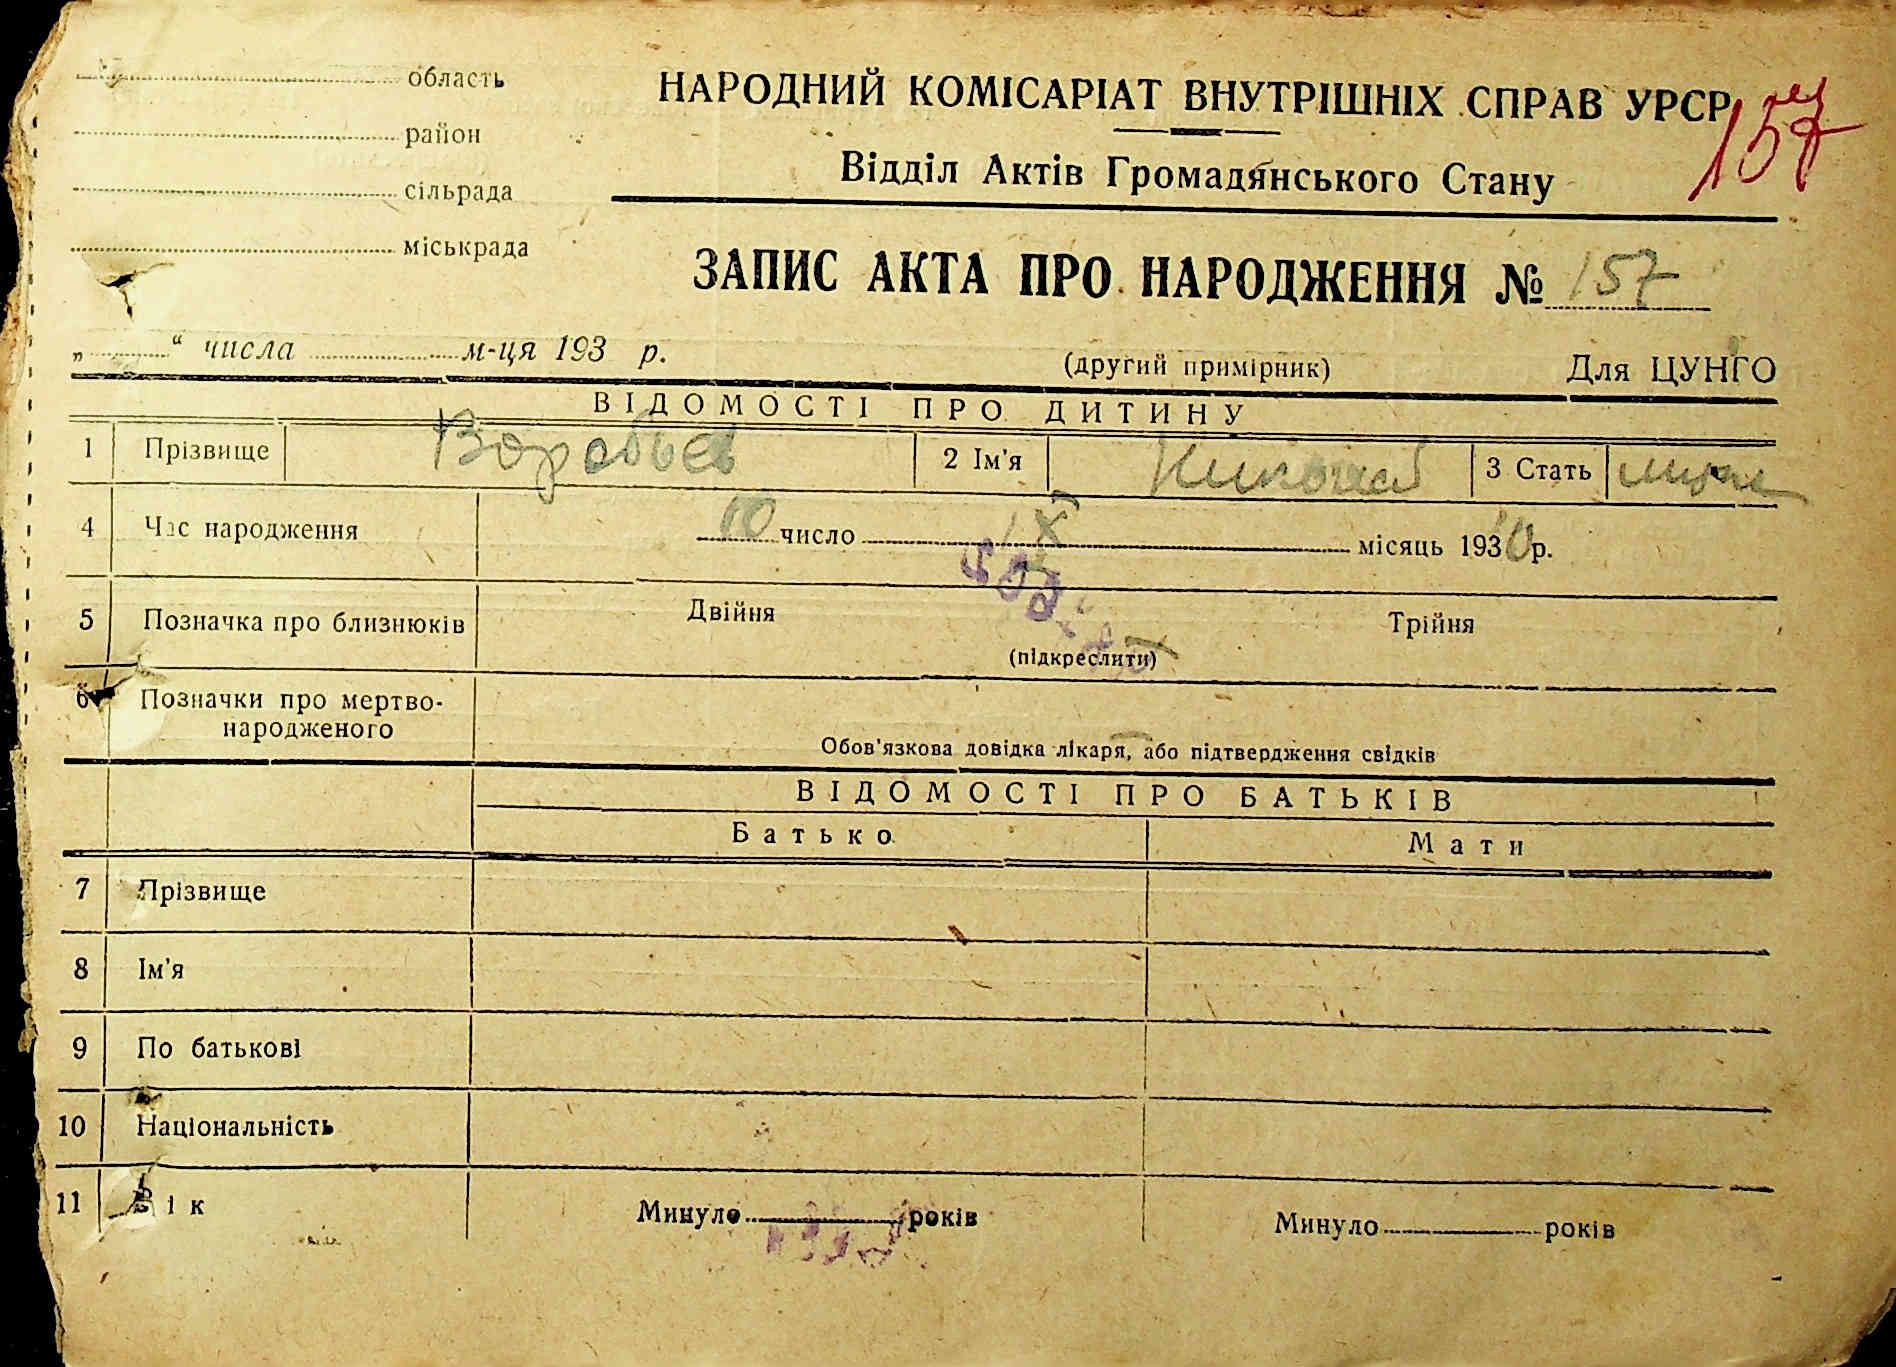 область
район
сільрада
міськрада
НАРОДНИЙ КОМІСАРІАТ ВНУТРІШНІХ СПРАВ УРСР
157
Відділ Актів Громадянського Стану
ЗАПИС АКТА ПРО НАРОДЖЕННЯ № 157
„ “ числа м-ця 193 р.
(другий примірник)
Для ЦУНГО
ВІДОМОСТІ ПРО ДИТИНУ
1 Прізвище Воробьев 2 Ім'я Николай 3 Стать
4 Час народження 10 число місяць 1930 р.
5 Позначка про близнюків Двійня Трійня
(підкреслити)
6 Позначки про мертво-
народженого
Обов'язкова довідка лікаря, або підтвердження свідків
ВІДОМОСТІ ПРО БАТЬКІВ
Батько Мати
7 Прізвище
8 Ім'я
9 По батькові
10 Національність
11 Вік Минуло років Минуло років